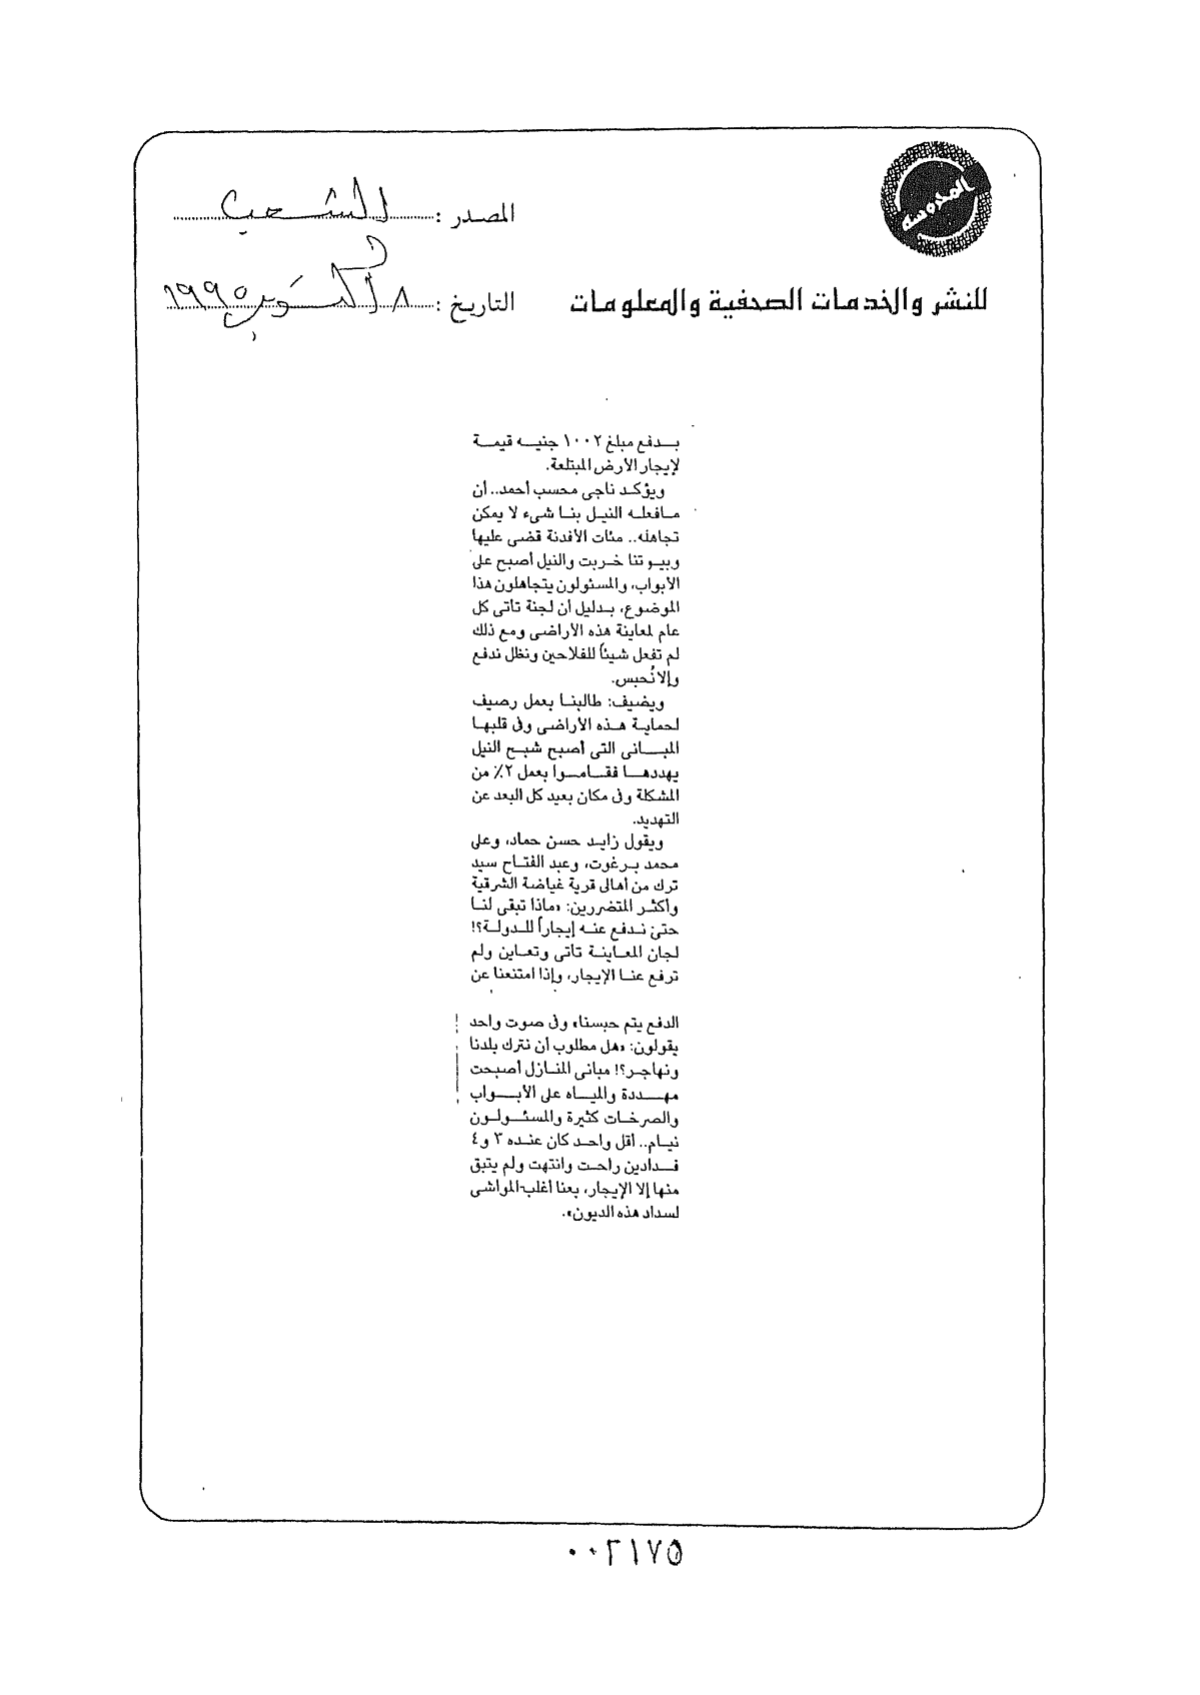 المحروسة
المصدر : الشعب
للنشر والخدمات الصحفية والمعلومات
التاريخ : ٨ أكتوبر ١٩٩٥
بدفع مبلغ ١٠٠٢ جنيه قيمة
لإيجار الأرض المبتلعة.
ويؤكد ناجى محسب أحمد.. أن
مافعله النيل بنا شىء لا يمكن
تجاهله.. مئات الأفدنة قضى عليها
وبيوتنا خربت والنيل أصبح على
الأبواب، والمسئولون يتجاهلون هذا
الموضوع، بدليل أن لجنة تأتى كل
عام لمعاينة هذه الأراضى ومع ذلك
لم تفعل شيئاً للفلاحين ونظل ندفع
وإلا نُحبس.
ويضيف: طالبنا بعمل رصيف
لحماية هذه الأراضى وفى قلبها
المبانى التى أصبح شبح النيل
يهددها فقاموا بعمل ٢٪ من
المشكلة وفى مكان بعيد كل البعد عن
التهديد.
ويقول زايد حسن حماد، وعلى
محمد برغوت، وعبد الفتاح سيد
ترك من أهالى قرية غياضة الشرقية
وأكثر المتضررين: «ماذا تبقى لنا
حتى ندفع عنه إيجاراً للدولة؟!
لجان المعاينة تأتى وتعاين ولم
ترفع عنا الإيجار، وإذا امتنعنا عن
الدفع يتم حبسنا» وفى صوت واحد
يقولون: «هل مطلوب أن نترك بلدنا
ونهاجر؟! مبانى المنازل أصبحت
مهددة والمياه على الأبواب
والصرخات كثيرة والمسئولون
نيام.. أقل واحد كان عنده ٣ و٤
فدادين راحت وانتهت ولم يتبق
منها إلا الإيجار، بعنا أغلب المواشى
لسداد هذه الديون».
٠٠٢١٧٥